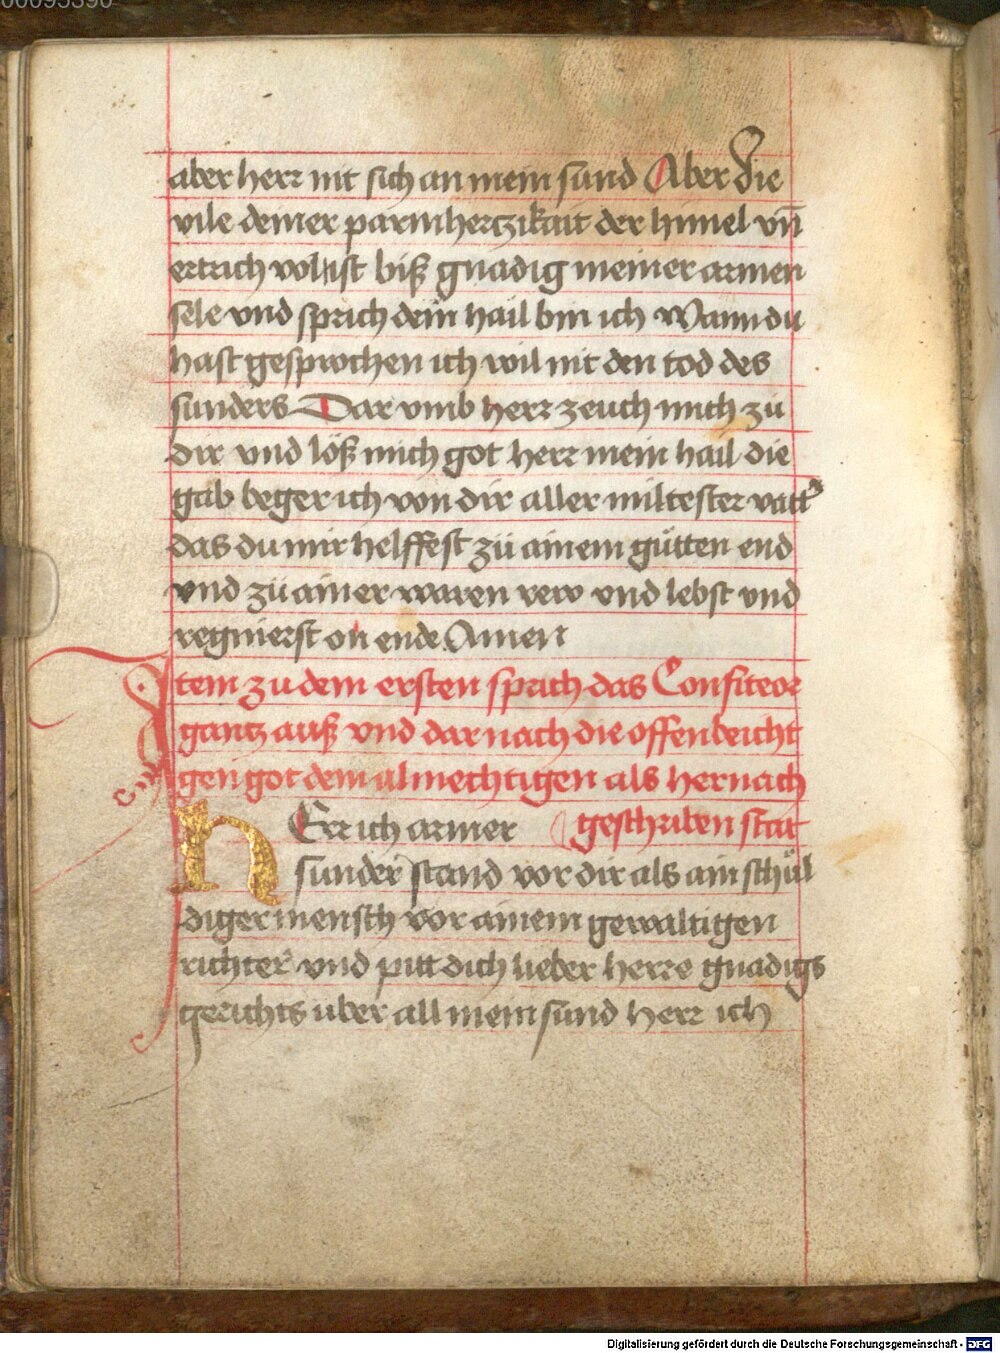 00095390
aber herr nit sich an mein sünd Aber die
vile deiner parmhertzikait der himel vn̄
ertrich vol ist biß gnadig meiner armen
sele vnd sprich dein hail bin ich Wann du
hast gesprochen ich wil nit den tod des
sunders Dar vmb herr zeuch mich zü
dir vnd löß mich got herr mein hail die
gab beger ich von dir aller miltester vatt’
das du mir helffest zü ainem gütten end
vnd zü ainer waren rew vnd lebst vnd
regnierst on ende Amen
Item zu dem ersten sprich das Confiteor
gantz auß vnd dar nach die offen beicht
gen got dem almechtigen als hernach
geschriben stat
hErr ich armer
sunder stand vor dir als ain schül
diger mensch vor ainem gewaltigen
richter vnd pitt dich lieber herre gnadigs
gerichts uber all mein sünd herr ich
Digitalisierung gefördert durch die Deutsche Forschungsgemeinschaft - DFG